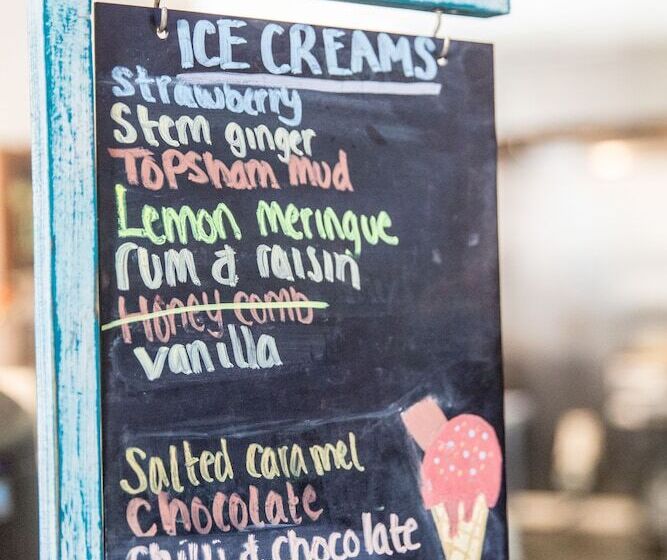 ICE CREAMS
strawberry
Stem ginger
Topsham mud
Lemon meringue
rum & raisin
Honey comb
vanilla
Salted caramel
Chocolate
Chilli & chocolate